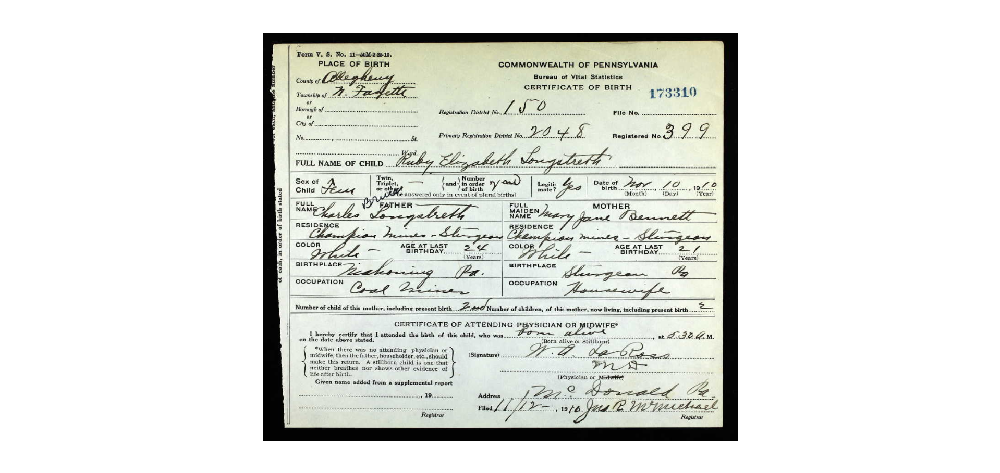 Form V. S. No.
PLACE OF BIRTH
COMMONWEALTH OF PENNSYLVANIA
County of Allegheny
Bureau of Vital Statistics
CERTIFICATE OF BIRTH
173310
Township of N. Fayette
or
Borough of
Registration District No. 150
File No.
or
City of
Primary Registration District No. 2048
Registered No. 399
No. St
Ward
FULL NAME OF CHILD Ruby Elizabeth Longstreth
Sex of Child Fem
Twin, Triplet, or other —
and Number in order of birth 2nd
(To be answered only in event of plural births)
Legitimate? Yes
Date of birth Nov 10 1910
(Month) (Day) (Year)
FATHER
FULL NAME Charles Longstreth
MOTHER
FULL MAIDEN NAME Mary Jane Bennett
RESIDENCE Champion Mines - Sturgeon
RESIDENCE Champion Mines - Sturgeon
COLOR White -
AGE AT LAST BIRTHDAY 24 (Years)
COLOR White -
AGE AT LAST BIRTHDAY 21 (Years)
BIRTHPLACE Mahoning Pa.
BIRTHPLACE Sturgeon Pa
OCCUPATION Coal Miner
OCCUPATION Housewife
Number of child of this mother, including present birth 2nd Number of children, of this mother, now living, including present birth 2
CERTIFICATE OF ATTENDING PHYSICIAN OR MIDWIFE*
I hereby certify that I attended the birth of this child, who was born alive, at 5:30 A. M.
on the date above stated.
(Born Alive or Stillborn)
*When there was no attending physician or
midwife, then the father, householder, etc., should
make this return. A stillborn child is one that
neither breathes nor shows other evidence of
life after birth.
(Signature) W. A. La Ross
M D
(Physician or Midwife)
Given name added from a supplemental report
, 19
Address McDonald Pa.
Filed 11/12 - 1910 Jno. P. McMichael
Registrar
Registrar